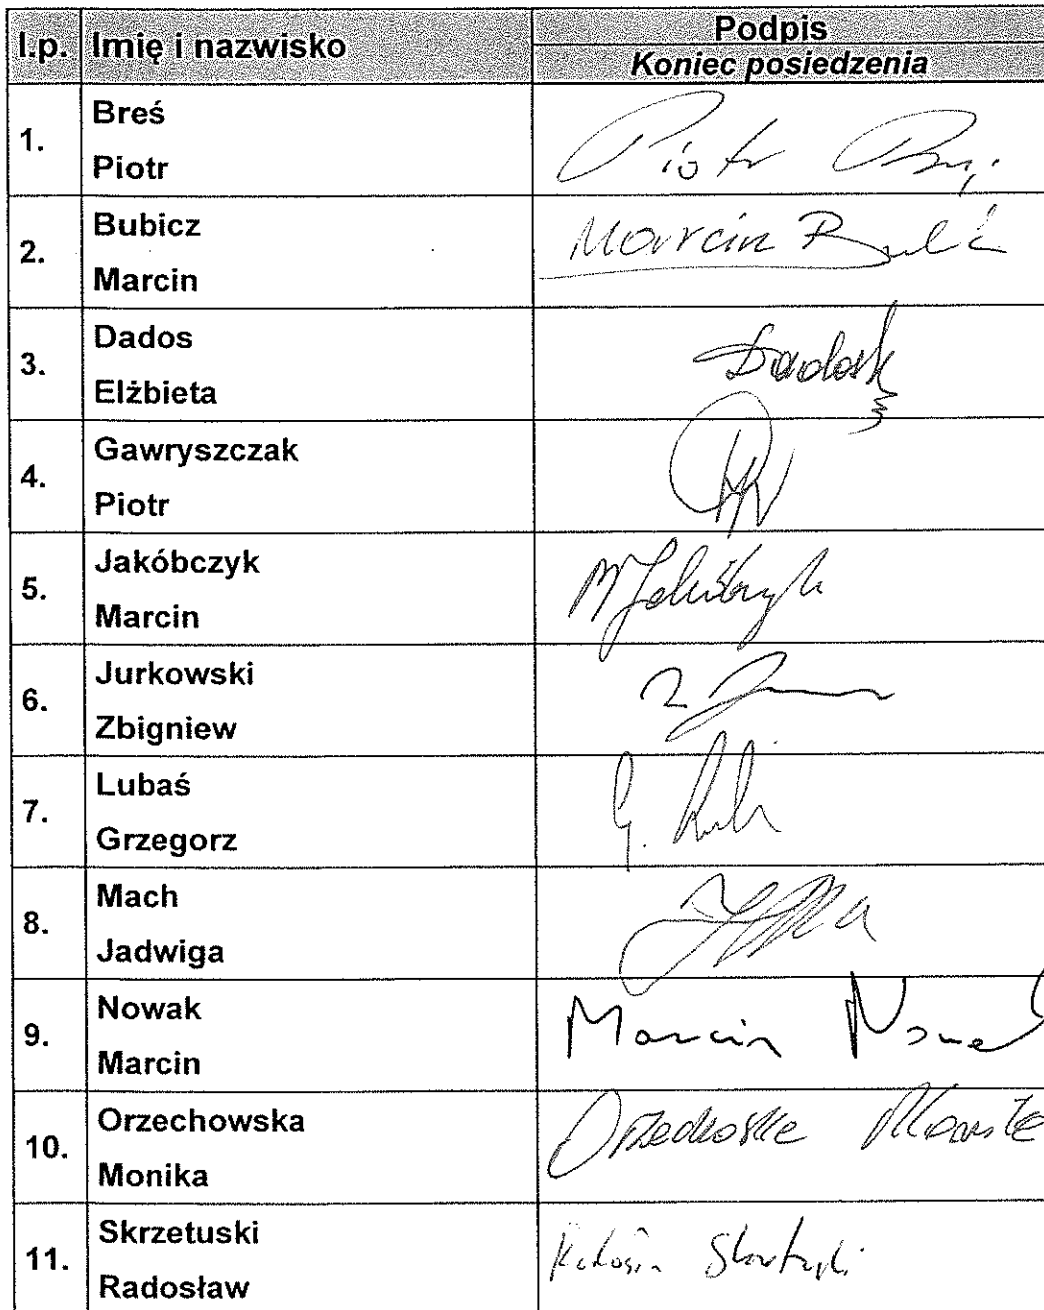 l.p. Imię i nazwisko Podpis
Koniec posiedzenia
1. Breś
Piotr
Piotr
2. Bubicz
Marcin
Marcin
3. Dados
Elżbieta
4. Gawryszczak
Piotr
5. Jakóbczyk
Marcin
M Jakóbczyk
6. Jurkowski
Zbigniew
7. Lubaś
Grzegorz
G.
8. Mach
Jadwiga
9. Nowak
Marcin
Marcin Nowak
10. Orzechowska
Monika
Orzechowska Monika
11. Skrzetuski
Radosław